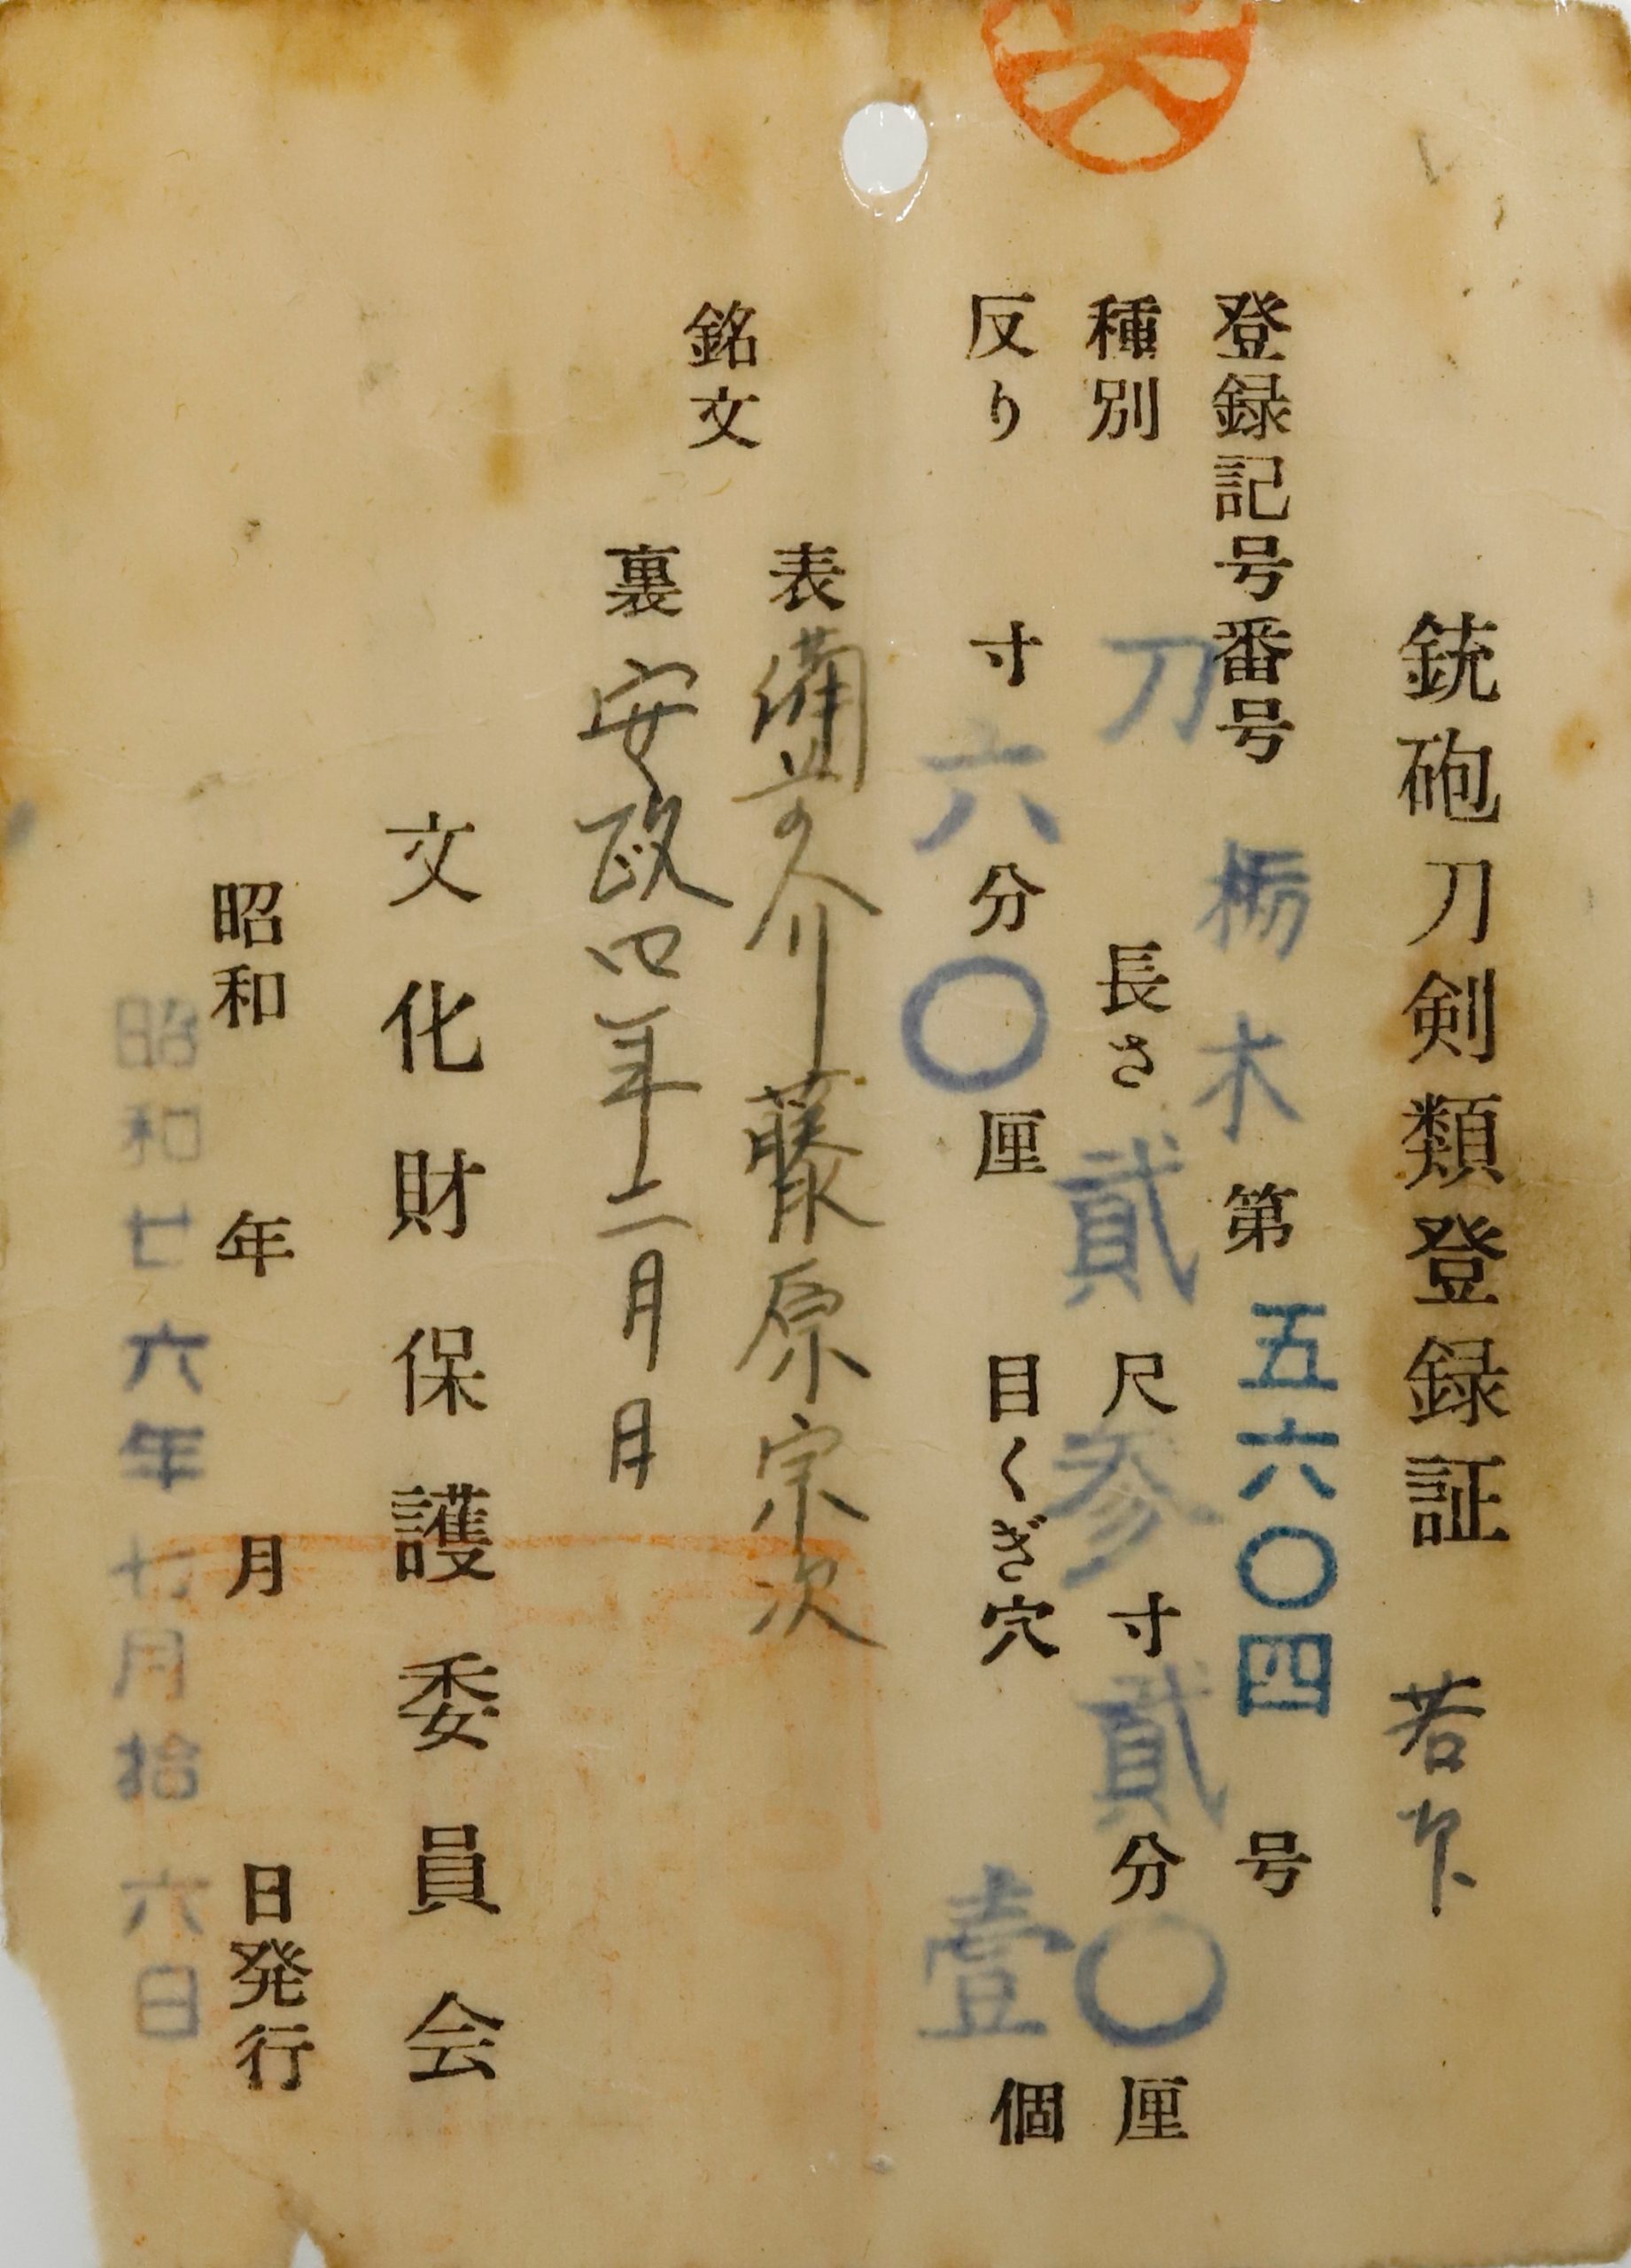 銃砲刀剣類登録証
登録記号番号 栃木 第五六〇四号
種別 刀 長さ 貳尺参寸貳分〇厘
反り 寸六分〇厘 目くぎ穴 壹個
銘文
表 備前介藤原宗次
裏 安政四年二月 月
文化財保護委員会
昭和 年 月 日発行
昭和廿六年七月拾六日